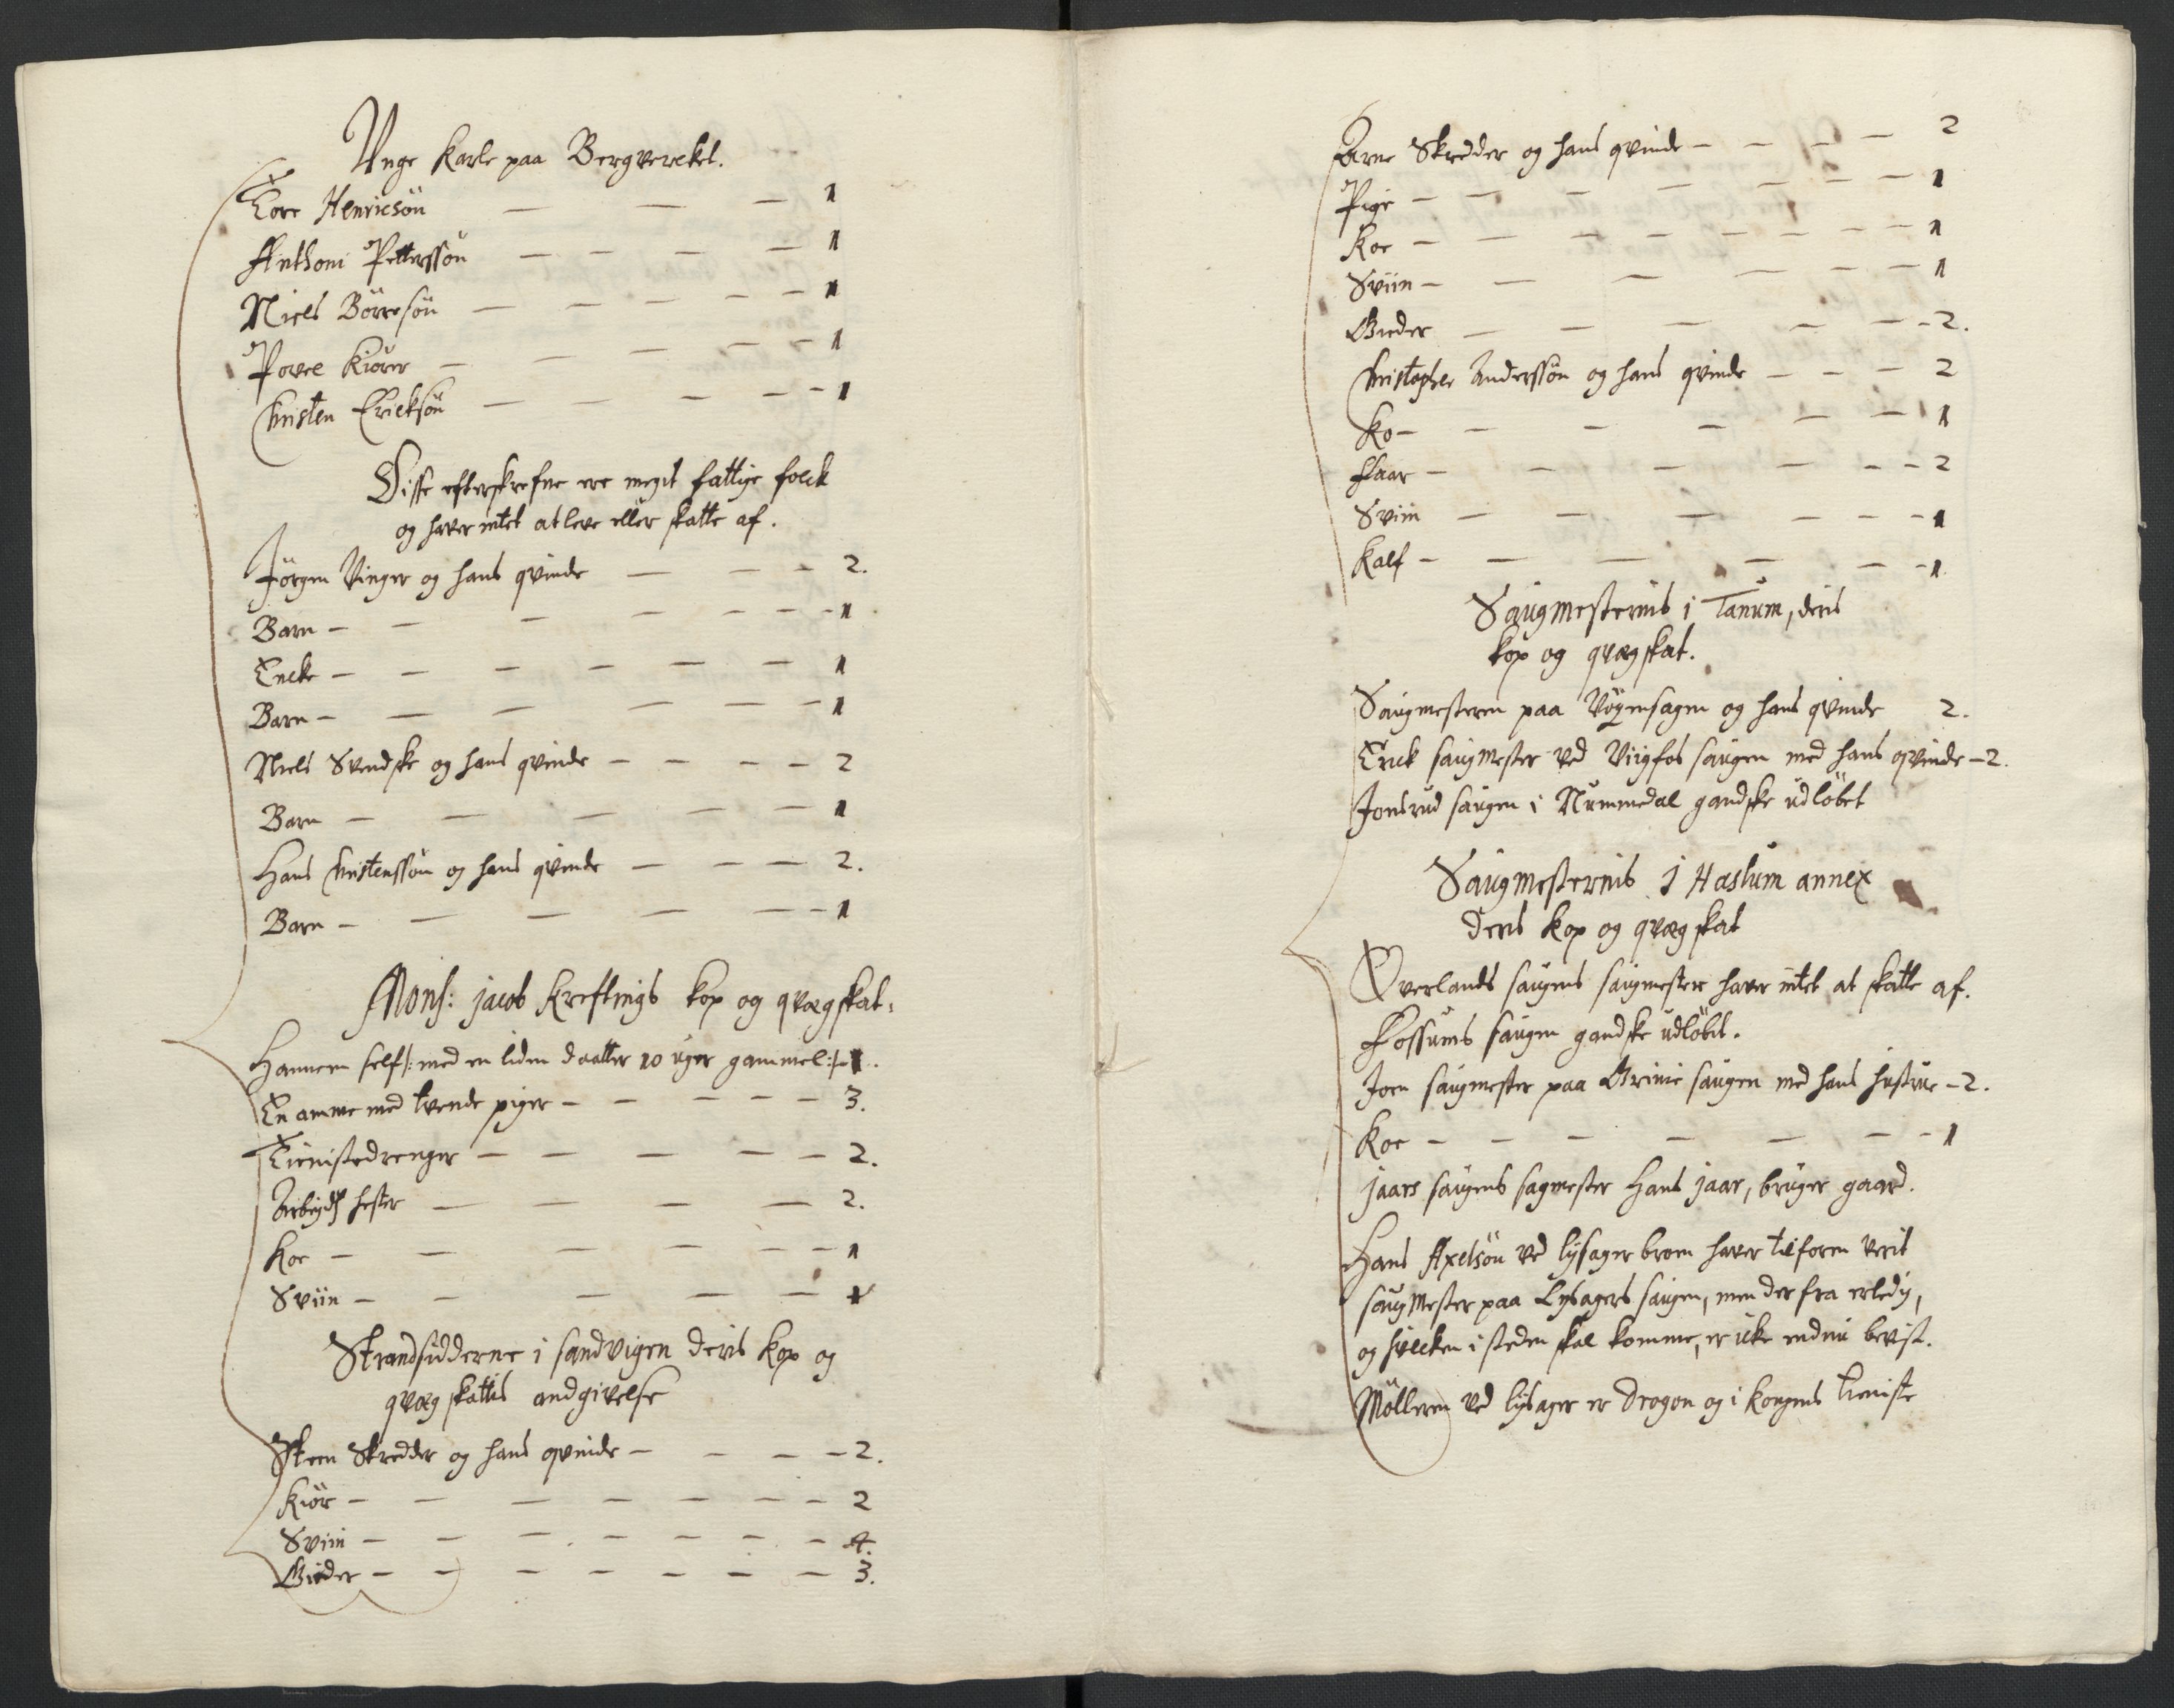 Unge Karle paa Bergverckel.
Tore Henricsön — — — 1
Anthoni Pettersson — — — — 1
Niels Börresön — — — — — 1
Povel Kiörer — — — — — 1
Christen Ericksön — — — — — 1
Disse efterskrefne ere megit fattige folck
og haver intet at leve eller skatte af.
Jörgen Vinger og hans qvinde — — — 2.
Barn — — — — — — — 1
Encke — — — — — — 1
Barn — — — — — — 1
Niels Svendske og hans qvinde — — — — 2
Barn — — — — — — 1
Hans Christenssön og hans qvinde — — — 2.
Barn — — — — — — 1
Mons: Jacob Kreftings kop og qvægskat.
Hannem self /: med en liden daatter 20 uger gammel :/ 1.
En amme med tvende piger — — — — — 3.
Tienistedrenger — — — — — 2.
Arbeyds hester — — — — 2.
Koe — — — — — — 1
Sviin — — — — — 1
Strandsidderne i Sandvigen deris kop og
qvæg skattis andgivelse
Steen Skredder og hans qvinde — — — — 2.
Kiör — — — — — — — — 2
Sviin — — — — — — — 4.
Gieder — — — — — — — 3.
Arne Skredder og hans qvinde — — — — 2
Pige — — — — — — — 1
Koe — — — — — — — — 1
Sviin — — — — — — 1
Gieder — — — — — — 2.
Christopher Anderssön og hans qvinde — — — 2
Ko — — — — — — 1
Faar — — — — — — 2
Sviin — — — — — — 1
Kalf — — — — — — 1
Saugmesternis i Tanum, deris
kop og qvægskat.
Saugmesteren paa Vöyensagen og hans qvinde 2.
Erick saugmester ved Viigfos saugen med hans qvinde — 2.
Jonsrud saugen i Nummedal gandske udlöbet
Saugmesternis i Haslum annex
deris kop og qvægskat
Overlands saugens saugmester haver intet at skatte af.
Fossums saugen gandske udlöbet.
Joen saugmester paa Grinie saugen med hans hustrue — 2.
Koe — — — — — — — 1
Jaars saugens sagmester Hans Jaar, bruger gaard.
Hans Axelsön ved Lysager broen haver tilforen verit
saugmester paa Lysagers saugen, men der fra erledig,
og hvilcken i steden skal komme, er icke endnu bevist.
Mölleren ved Lysager er Dragon og i kongens tieniste